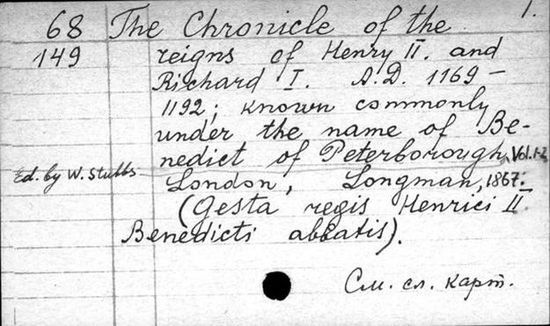 1.
68 The Chronicle of the
149 reigns of Henry II. and
Richard I. A.D. 1169-
1192; known commonly
under the name of Be-
nedict of Peterborough, Vol. 1-2
Ed. by W. Stubbs London, Longman, 1867.
(Gesta regis Henrici II
Benedicti abbatis).
См. сл. карт.